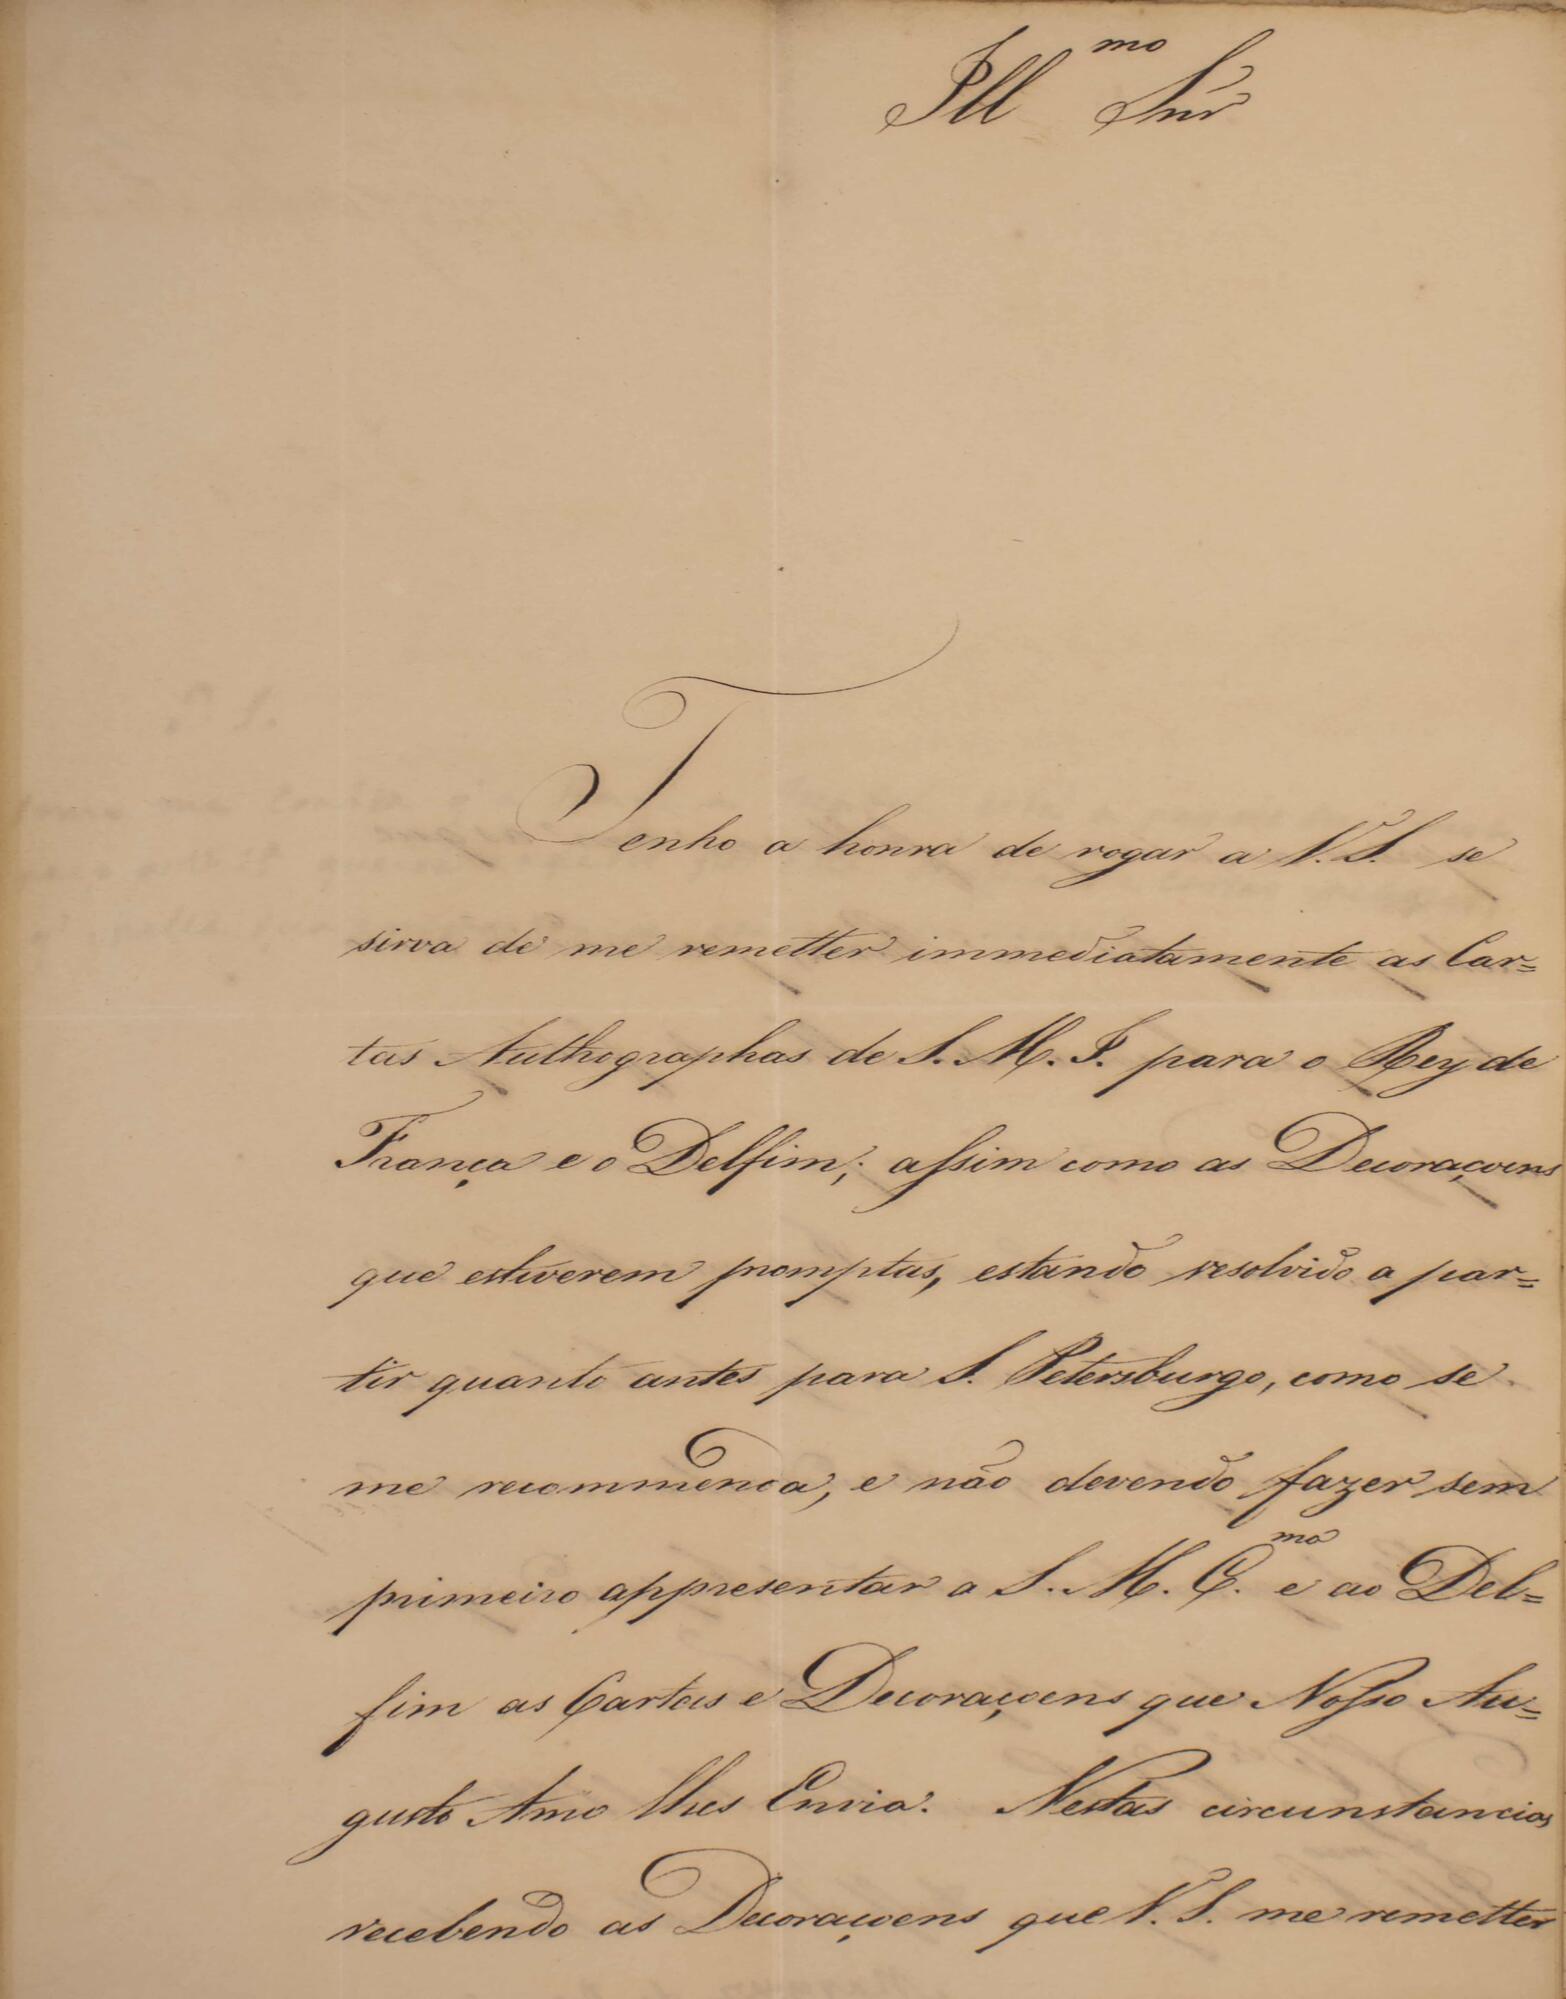 Ill mo Snr
Tenho a honra de rogar a V. S. se
sirva de me remetter immediatamente as Car=
tas Authographas de S. M. I. para o Rey de
França e o Delfim; assim como as Decoraçoens
que estiverem promptas, estando resolvido a par=
tir quanto antes para S. Petersburgo, como se
me recommenda, e não devendo fazer sem
primeiro appresentar a S. M. C. ma e ao Del=
fim as Cartas e Decoraçoens que Nosso Au=
gusto Amo lhes Envia. Nestas circunstancias
recebendo as Decoraçoens que V. S. me remetter